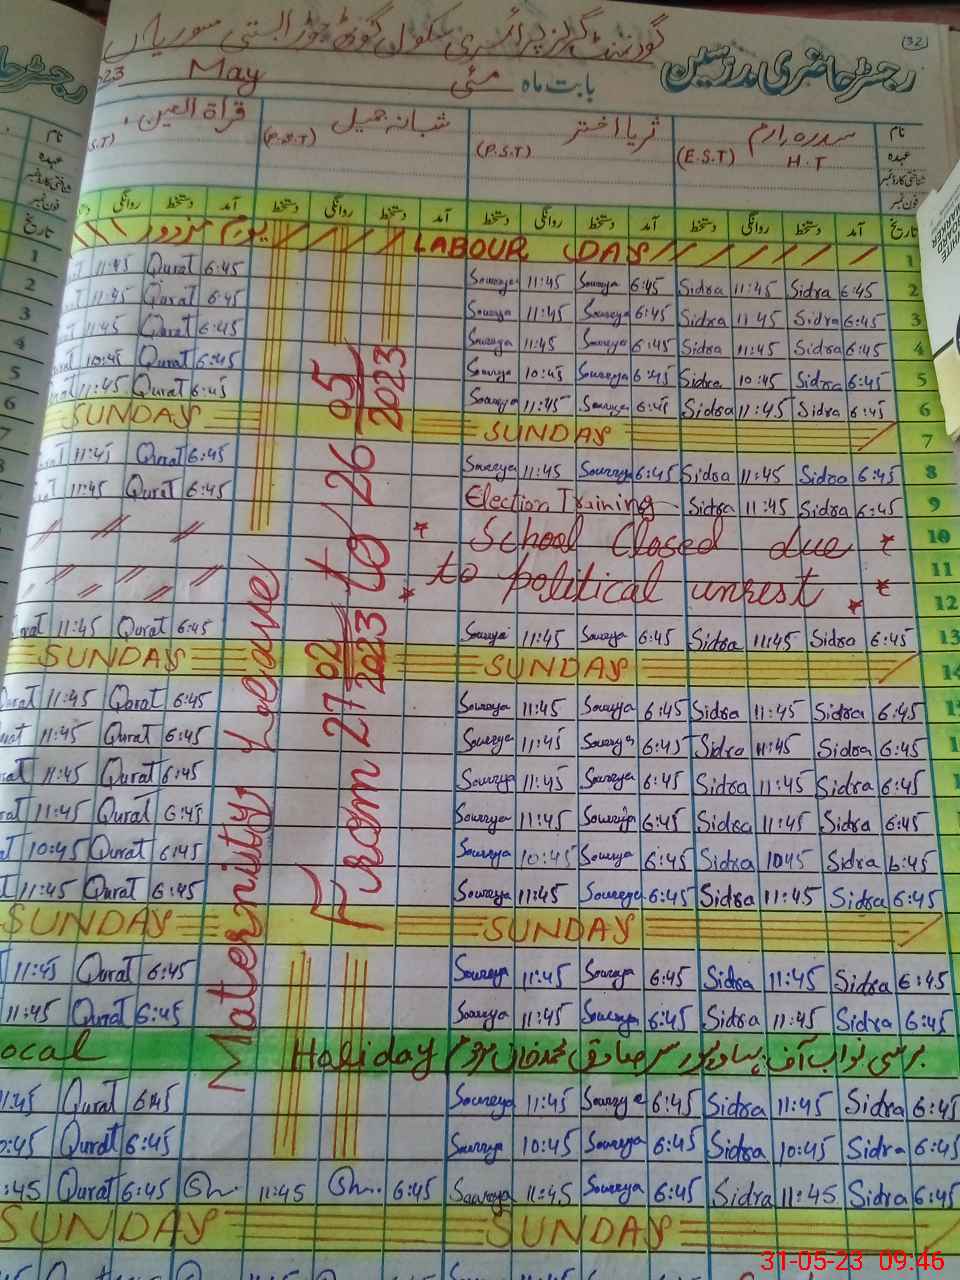 (32)
رجسٹر حاضری مدرسین
گورنمنٹ گرلز پرائمری سکول گوٹھ
بابت ماہ مئی May 23
نام سدرہ ارم ثریا اختر شبانہ جمیل قراۃ العین
عہدہ H.T (E.S.T) (P.S.T) (P.S.T) S.T)
شناختی کارڈ نمبر
فون نمبر
تاریخ آمد دستخط روانگی دستخط آمد دستخط روانگی دستخط آمد دستخط روانگی دستخط آمد دستخط روانگی
1 LABOUR DAY یوم مزدور
11:45 Qurat 6:45 Soureya 11:45 Soureya 6:45 Sidra 11:45 Sidra 6:45 2
11:45 Qurat 6:45 Soureya 11:45 Soureya 6:45 Sidra 11:45 Sidra 6:45 3
11:45 Qurat 6:45 Soureya 11:45 Soureya 6:45 Sidra 11:45 Sidra 6:45 4
10:45 Qurat 6:45 Soureya 10:45 Soureya 6:45 Sidra 10:45 Sidra 6:45 5
11:45 Qurat 6:45 Soureya 11:45 Soureya 6:45 Sidra 11:45 Sidra 6:45 6
SUNDAY SUNDAY 7
11:45 Qurat 6:45 Soureya 11:45 Soureya 6:45 Sidra 11:45 Sidra 6:45 8
11:45 Qurat 6:45 Election Training Sidra 11:45 Sidra 6:45 9
* School Closed due * 10
* to political unrest * 11
12
Qurat 11:45 Qurat 6:45 Soureya 11:45 Soureya 6:45 Sidra 11:45 Sidra 6:45 13
SUNDAY SUNDAY 14
Qurat 11:45 Qurat 6:45 Soureya 11:45 Soureya 6:45 Sidra 11:45 Sidra 6:45
11:45 Qurat 6:45 Soureya 11:45 Soureya 6:45 Sidra 11:45 Sidra 6:45
11:45 Qurat 6:45 Soureya 11:45 Soureya 6:45 Sidra 11:45 Sidra 6:45
11:45 Qurat 6:45 Soureya 11:45 Soureya 6:45 Sidra 11:45 Sidra 6:45
10:45 Qurat 6:45 Soureya 10:45 Soureya 6:45 Sidra 1045 Sidra 6:45
11:45 Qurat 6:45 Soureya 11:45 Soureya 6:45 Sidra 11:45 Sidra 6:45
SUNDAY SUNDAY
11:45 Qurat 6:45 Soureya 11:45 Soureya 6:45 Sidra 11:45 Sidra 6:45
11:45 Qurat 6:45 Soureya 11:45 Soureya 6:45 Sidra 11:45 Sidra 6:45
ocal Holiday برسی نواب آف بہاولپور سر صادق محمد خان مرحوم
11:45 Qurat 6:45 Soureya 11:45 Soureya 6:45 Sidra 11:45 Sidra 6:45
0:45 Qurat 6:45 Soureya 10:45 Soureya 6:45 Sidra 10:45 Sidra 6:45
:45 Qurat 6:45 Sh. 11:45 Sh.. 6:45 Soureya 11:45 Soureya 6:45 Sidra 11:45 Sidra 6:45
SUNDAY SUNDAY
Maternity Leave
From 27 02/2023 to 26 05/2023
WHITE BOARD MARKER
31-05-23 09:46